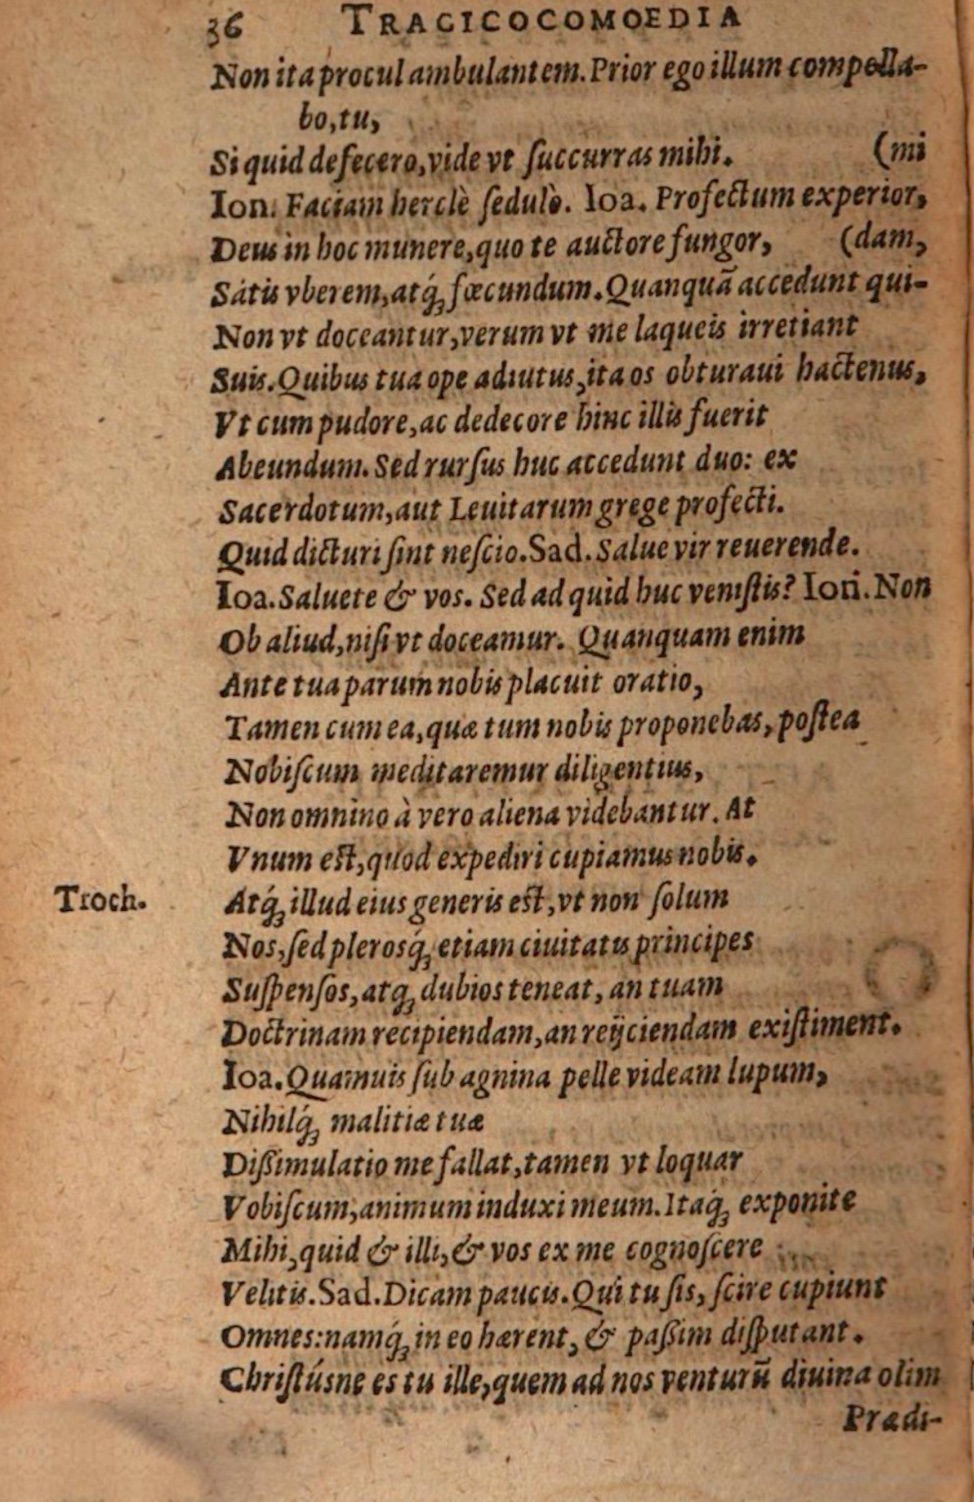 36 TRAGICOCOMOEDIA
Non ita procul ambulantem. Prior ego illum compella-
bo, tu,
Si quid defecero, vide vt ſuccurras mihi. (mi
Ion. Faciam herclè ſedulò. Ioa. Profectum experior,
Deus in hoc munere, quo te auctore fungor, (dam,
Satis vberem, atq́; fœcundum. Quanquã accedunt qui-
Non vt doceantur, verum vt me laqueis irretiant
Suis. Quibus tua ope adiutus, ita os obturaui hactenus,
Vt cum pudore, ac dedecore hinc illis fuerit
Abeundum. Sed rurſus huc accedunt duo: ex
Sacerdotum, aut Leuitarum grege profecti.
Quid dicturi ſint neſcio. Sad. Salue vir reuerende.
Ioa. Saluete & vos. Sed ad quid huc veniſtis? Ion. Non
Ob aliud, niſi vt doceamur. Quanquam enim
Ante tua parum nobis placuit oratio,
Tamen cum ea, quæ tum nobis proponebas, poſtea
Nobiſcum meditaremur diligentius,
Non omnino à vero aliena videbantur. At
Vnum eſt, quod expediri cupiamus nobis.
Troch. Atq́; illud eius generis eſt, vt non ſolum
Nos, ſed plerosq́; etiam ciuitatis principes
Suſpenſos, atq; dubios teneat, an tuam
Doctrinam recipiendam, an reijciendam exiſtiment.
Ioa. Quamuis ſub agnina pelle videam lupum,
Nihilq́; malitiæ tuæ
Diſſimulatio me fallat, tamen vt loquar
Vobiſcum, animum induxi meum. Itaq́; exponite
Mihi, quid & illi, & vos ex me cognoſcere
Velitis. Sad. Dicam paucis. Qui tu ſis, ſcire cupiunt
Omnes: namq́; in eo hærent, & paſſim diſputant.
Chriſtúsne es tu ille, quem ad nos venturũ diuina olim
Prædi-